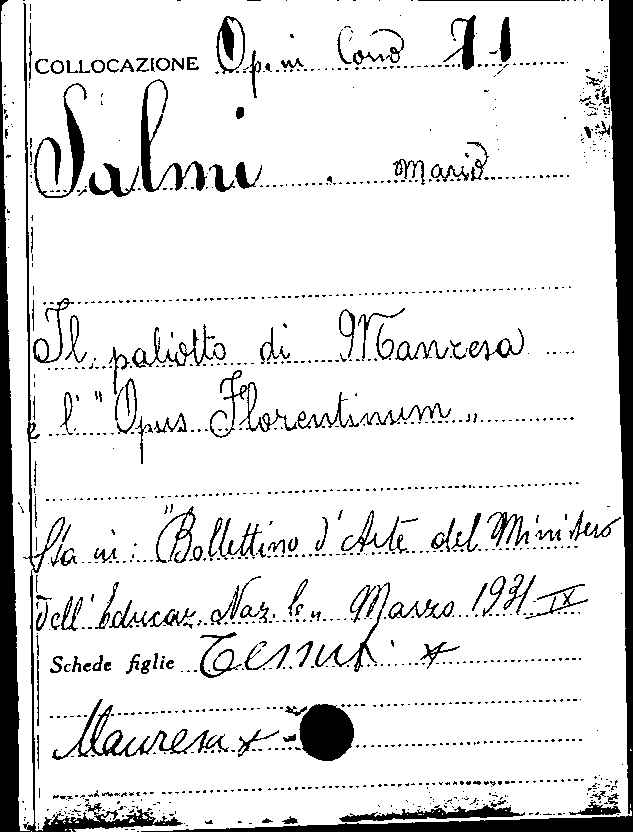 COLLOCAZIONE Op. in Corso 71
Salmi. Mario
Il paliotto di Manresa
e l' "Opus Florentinum"
Sta in: "Bollettino d'Arte del Ministero
dell'Educaz. Naz.le" Marzo 1931 IX
Schede figlie Tessuti x
Manresa x